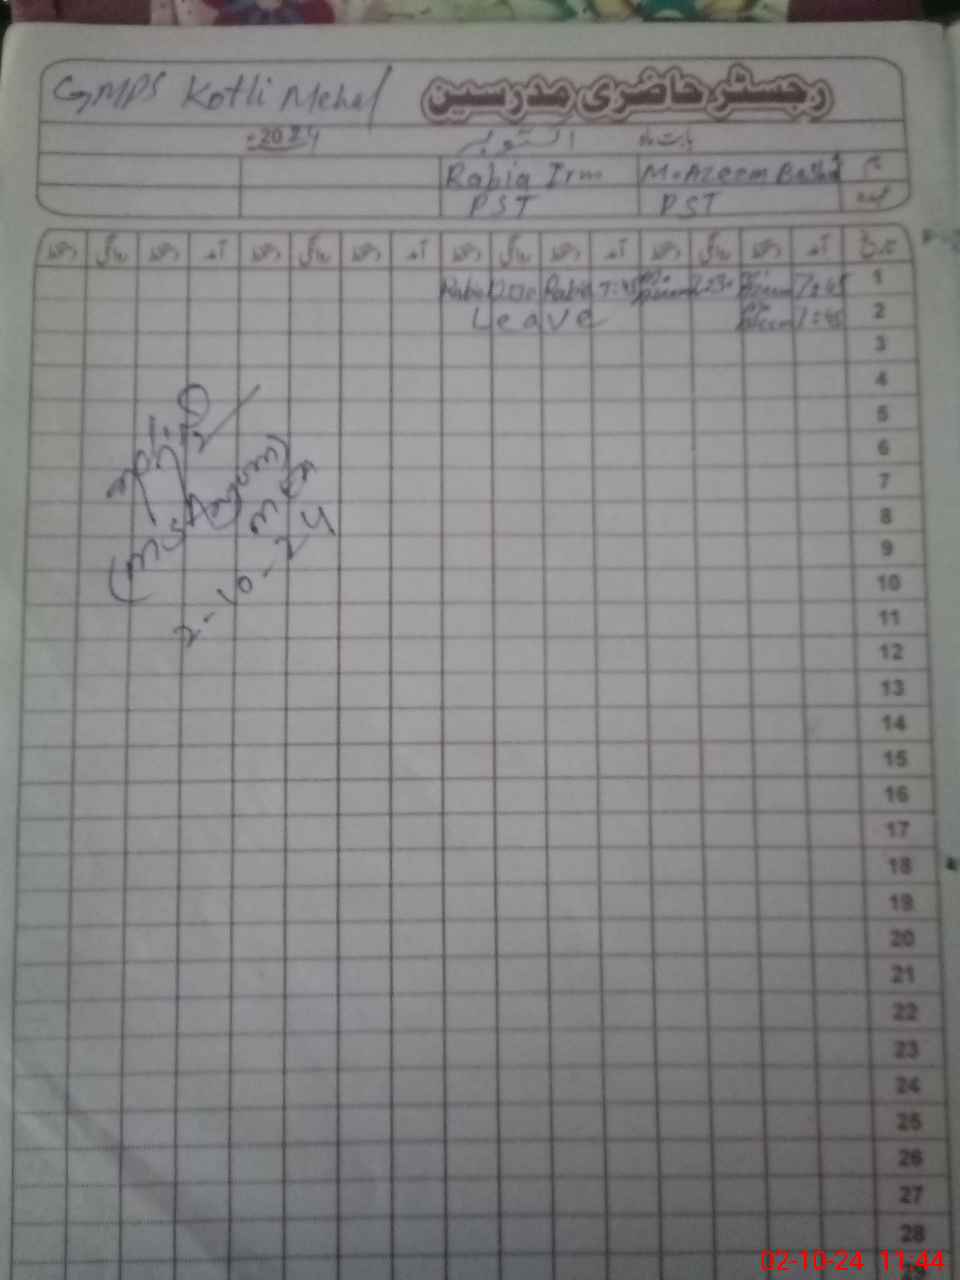 GMPS Kotli Mehal رجسٹر حاضری مدرسین
بابت ماہ اکتوبر 2024
نام M. Azeem Rabia Irm
عہدہ PST PST
تاریخ آمد دستخط روانگی دستخط آمد دستخط روانگی دستخط آمد دستخط روانگی دستخط آمد دستخط روانگی دستخط
1 7:45 Azeem Rabia
2 7:45 Azeem Leave
3
4
5
6
7
8
9
10
11
12
13
14
15
16
17
18
19
20
21
22
23
24
25
26
27
28
2-10-24
02-10-24 11:44